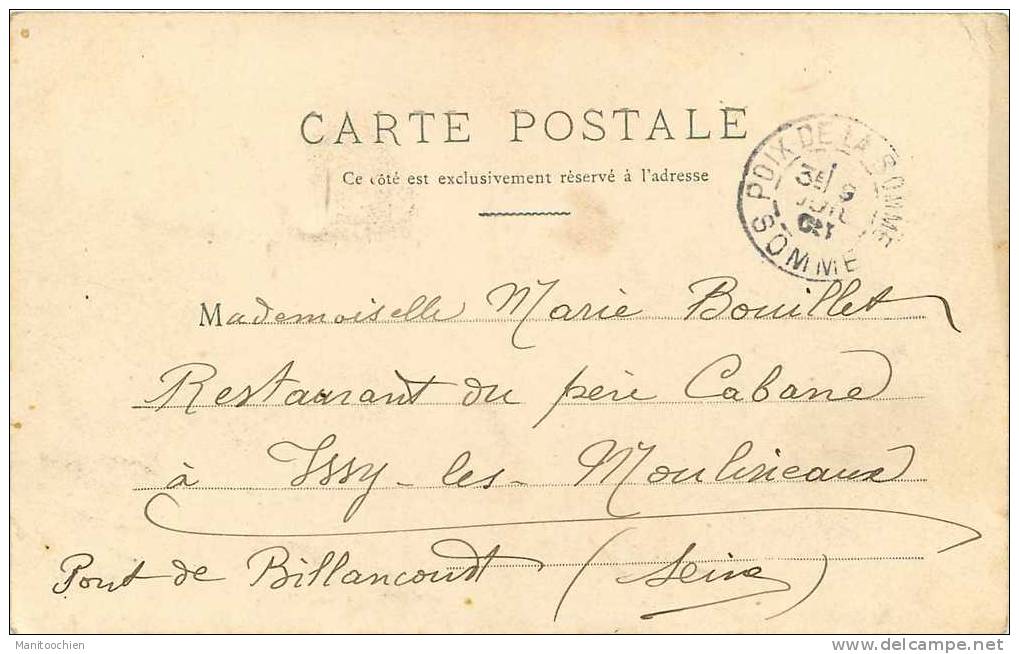 CARTE POSTALE
Ce côté est exclusivement réservé à l'adresse
POIX DE LA SOMME
3E 9
SOMME
Mademoiselle Marie Bouillet
Restaurant du père Cabane
à Issy-les-Moulineaux
Pont de Billancourt (Seine)
Manitoochien
www.delcampe.net